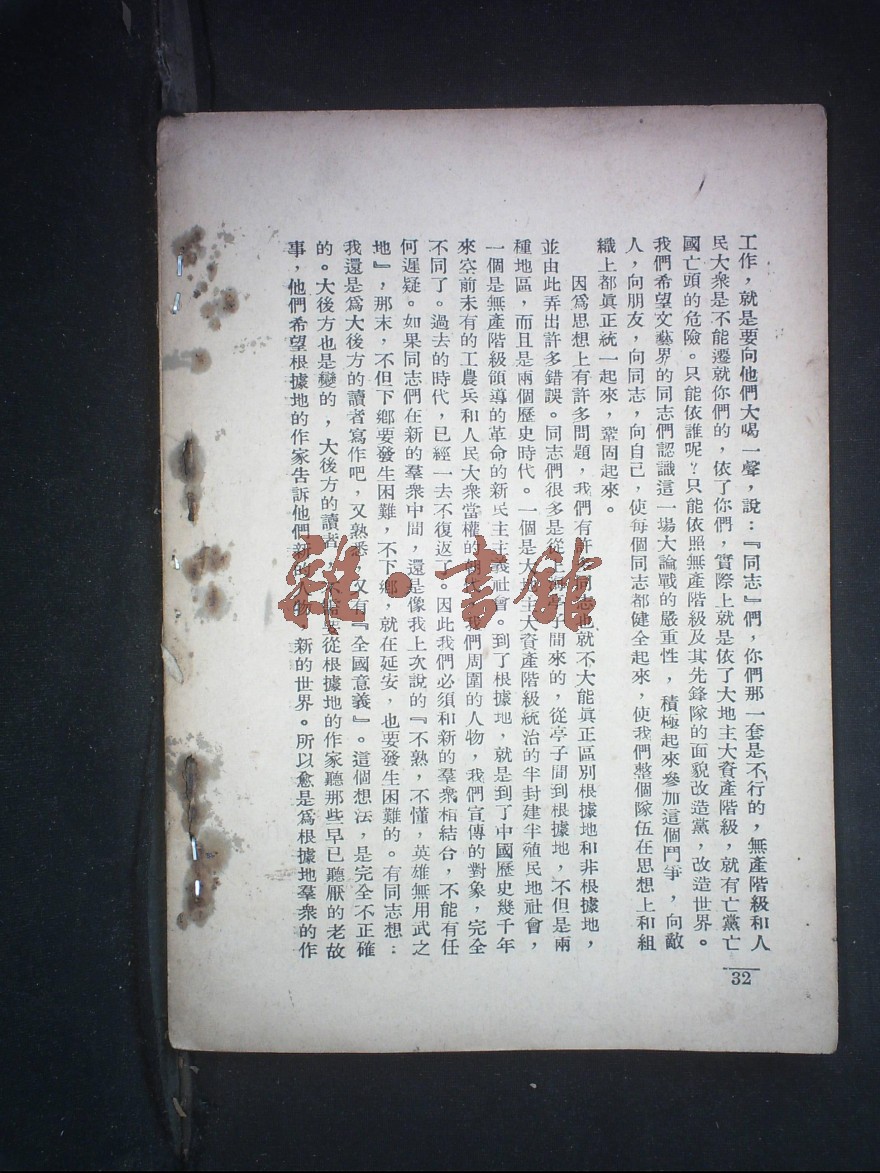 工作，就是要向他們大喝一聲，說：『同志』們，你們那一套是不行的，無產階級和人
民大衆是不能遷就你們的，依了你們，實際上就是依了大地主大資產階級，就有亡黨亡
國亡頭的危險。只能依誰呢？只能依照無產階級及其先鋒隊的面貌改造黨，改造世界。
我們希望文藝界的同志們認識這一場大論戰的嚴重性，積極起來參加這個鬥爭，向敵
人，向朋友，向同志，向自己，使每個同志都健全起來，使我們整個隊伍在思想上和組
織上都眞正統一起來，鞏固起來。
因爲思想上有許多問題，我們有許多同志也就不大能眞正區別根據地和非根據地，
並由此弄出許多錯誤。同志們很多是從亭子間來的，從亭子間到根據地，不但是兩
種地區，而且是兩個歷史時代。一個是大地主大資產階級統治的半封建半殖民地社會，
一個是無產階級領導的革命的新民主主義社會。到了根據地，就是到了中國歷史幾千年
來空前未有的工農兵和人民大衆當權的，我們周圍的人物，我們宣傳的對象，完全
不同了。過去的時代，已經一去不復返了。因此我們必須和新的羣衆相結合，不能有任
何遲疑。如果同志們在新的羣衆中間，還是像我上次說的『不熟，不懂，英雄無用武之
地』，那末，不但下鄉要發生困難，不下鄉，就在延安，也要發生困難的。有同志想：
我還是爲大後方的讀者寫作吧，又熟悉，又有『全國意義』。這個想法，是完全不正確
的。大後方也是變的，大後方的讀者，從根據地的作家聽那些早已聽厭的老故
事，他們希望根據地的作家告訴他們新的人物，新的世界。所以愈是爲根據地羣衆的作
32
雜·書館